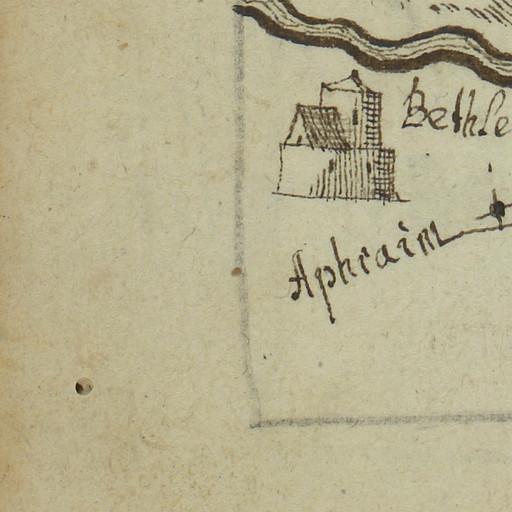 Bethle
Aphraim